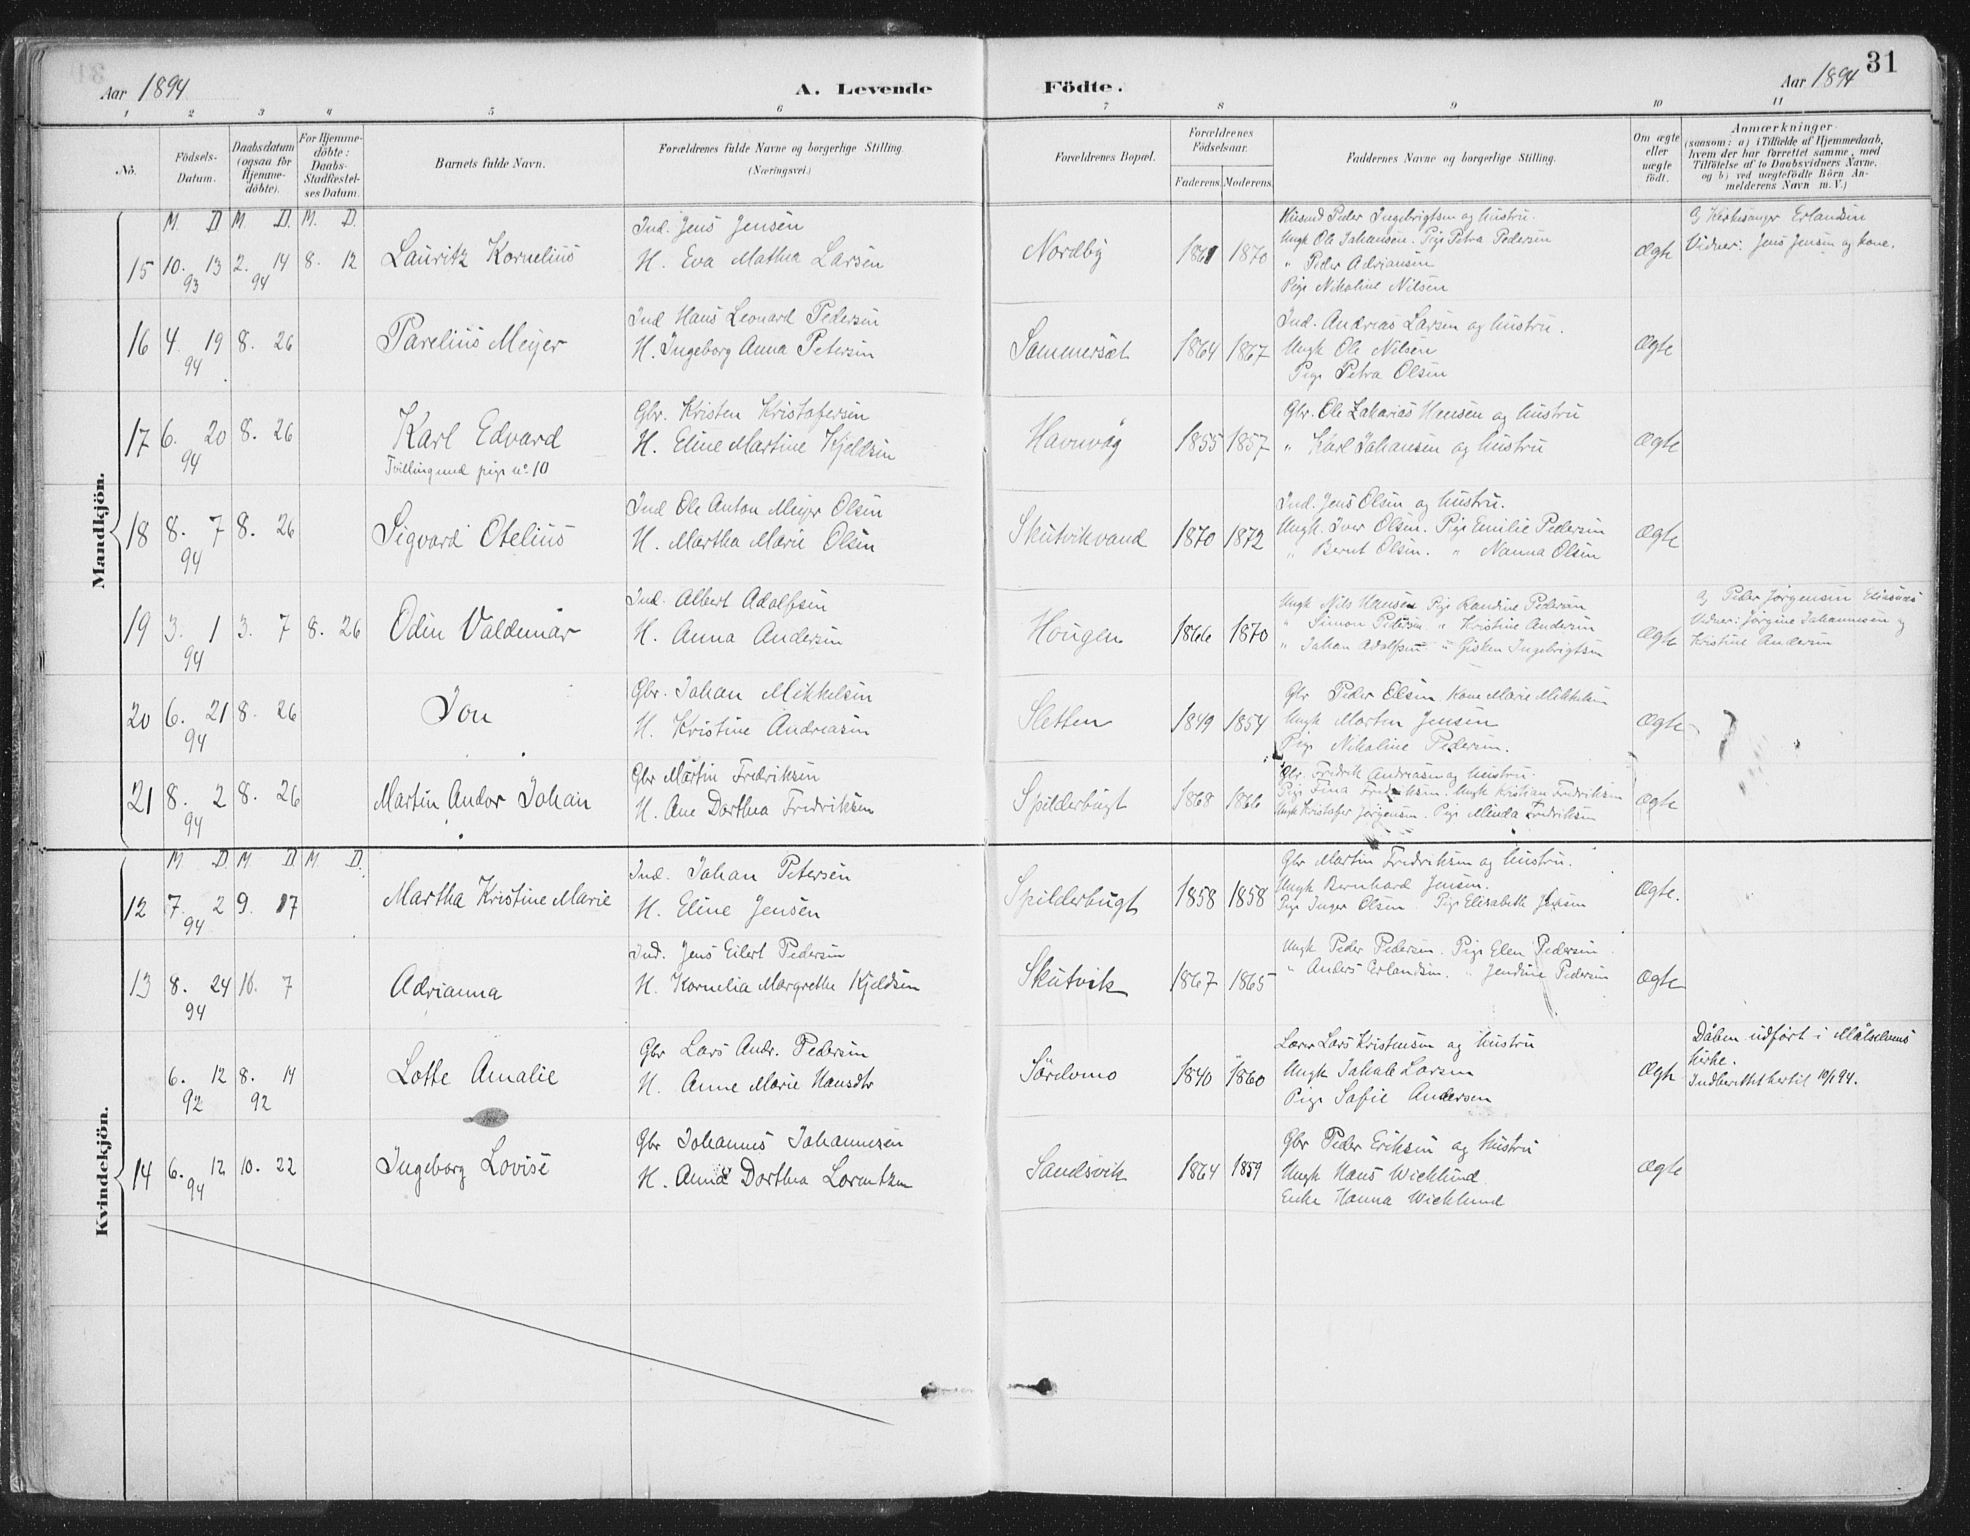 31
Aar 1894
A. Levende Födte.
Aar 1894
1 2 3 4 5 6 7 8 9 10 11
No.
Födsels-Datum.
Daabsdatum (ogsaa for Hjemme-döbte).
For Hjemme-döbte: Daabs-Stadfæstel-ses Datum.
Barnets fulde Navn.
Forældrenes fulde Navne og borgerlige Stilling. (Næringsvei.)
Forældrenes Bopæl.
Forældrenes Födselsaar.
Faderens. Moderens.
Faddernes Navne og borgerlige Stilling.
Om ægte eller uægte födt.
Anmærkninger
(saasom: a) i Tilfælde af Hjemmedaab, hvem der har forrettet samme, med Tilföielse af to Daabsvidners Navne, og b) ved uægtefödte Börn An-melderens Navn m. V.)
Mandkjön.
M. D. M. D. M. D.
15 10. 13 93 2. 14 94 8. 12 Lauritz Kornelius
Ind. Jens Jensen
H. Eva Mathea Larsen
Nordby 1861 1870
Husmd Peder Ingebrigtsen og hustru.
Ungk Ole Johansen. Pige Petra Pedersen
" Peder Adriansen
Pige Nikoline Nilsen
Ægte
Kirkesanger Erlandsen
Vidner: Jens Jensen og kone.
16 4. 19 94 8. 26 Parelius Meyer
Ind Hans Leonard Pedersen
H. Ingeborg Anna Petersen
Sommerset 1864 1867
Ind. Andreas Larsen og hustru.
Ungk Ole Nilsen
Pige Petra Olsen
Ægte
17 6. 20 94 8. 26 Karl Edvard
Tvilling med pige no 10
Gbr. Kristen Kristofersen
H. Eline Martine Kjeldsen
Havnvåg 1855 1857
Gbr. Ole Zakarias Hansen og hustru
" Karl Johansen og hustru
Ægte
18 8. 7 94 8. 26 Sigvard Otelius
Ind Ole Anton Meyer Olsen
H. Martha Marie Olsen
Skutvikvand 1870 1872
Ind. Jens Olsen og hustru.
Ungk. Iver Olsen. Pige Emilie Pedersen
" Bernt Olsen. " Nanna Olsen
Ægte
19 3. 1 94 3. 7 8. 26 Odin Valdemar
Ind. Albert Adolfsen
H. Anna Andersen
Hougen 1866 1870
Ungk Nils Hansen Pige Randine Pedersen
" Simon Petersen " Kristine Andersen
" Johan Adolfsen " Gisken Ingebrigtsen
Ægte
Peder Jørgensen
Vidner: Jørgine Johannesen og
Kristine Andersen
20 6. 21 94 8. 26 Jon
Gbr. Johan Mikkelsen
H. Kristine Andreasen
Sletten 1849 1854
Gbr Peder Olsen Kone Marie Mikkelsen
Ungk Morten Jensen
Pige Nikoline Pedersen.
Ægte
21 8. 2 94 8. 26 Martin Andor Johan
Gbr Martin Fredriksen
H. Ane Dorthea Fredriksen
Spilderbugt 1868 1866
Gbr. Fredrik Andreasen og hustru.
Pige Fina Fredriksen. Ungk Kristian Fredriksen
Ungk Kristofer Jørgensen. Pige Minda Fredriksen
Ægte
Kvindekjön.
M. D. M. D M D.
12 7. 2 94 9. 17 Martha Kristine Marie
Ind. Johan Petersen
H. Eline Jensen
Spilderbugt 1858 1858
Gbr Martin Fredriksen og hustru.
Ungk Bernhard Jensen.
Pige Inger Olsen Pige Elisabeth Jensen
Ægte.
13 8. 24 94 10. 7 Adrianna
Ind. Jens Eilert Pedersen
H. Kornelia Margrethe Kjeldsen
Skutvik 1867 1865
Ungk Peder Pedersen. Pige Elen Pedersen.
" Anders Erlandsen. " Jendine Pedersen
Ægte
6. 12 92 8. 14 92 Lotte Amalie
Gbr Lars Andr. Pedersen
H. Anne Marie Hansdtr
Sördomo 1840 1860
Lærer Lars Kristensen og hustru
Ungk Jakob Larsen
Pige Sofie Andersen
Ægte
Dåben udført i Målselvens
kirke.
Indberettet hertil 10/1 94.
14 6. 12 94 10. 22 Ingeborg Lovise
Gbr Johannes Johannesen
H. Anna Dorthea Lorentzen
Sandsvik 1864 1859
Gbr Peder Eriksen og hustru
Ungk Hans Wicklund
Enke Hanna Wicklund
Ægte